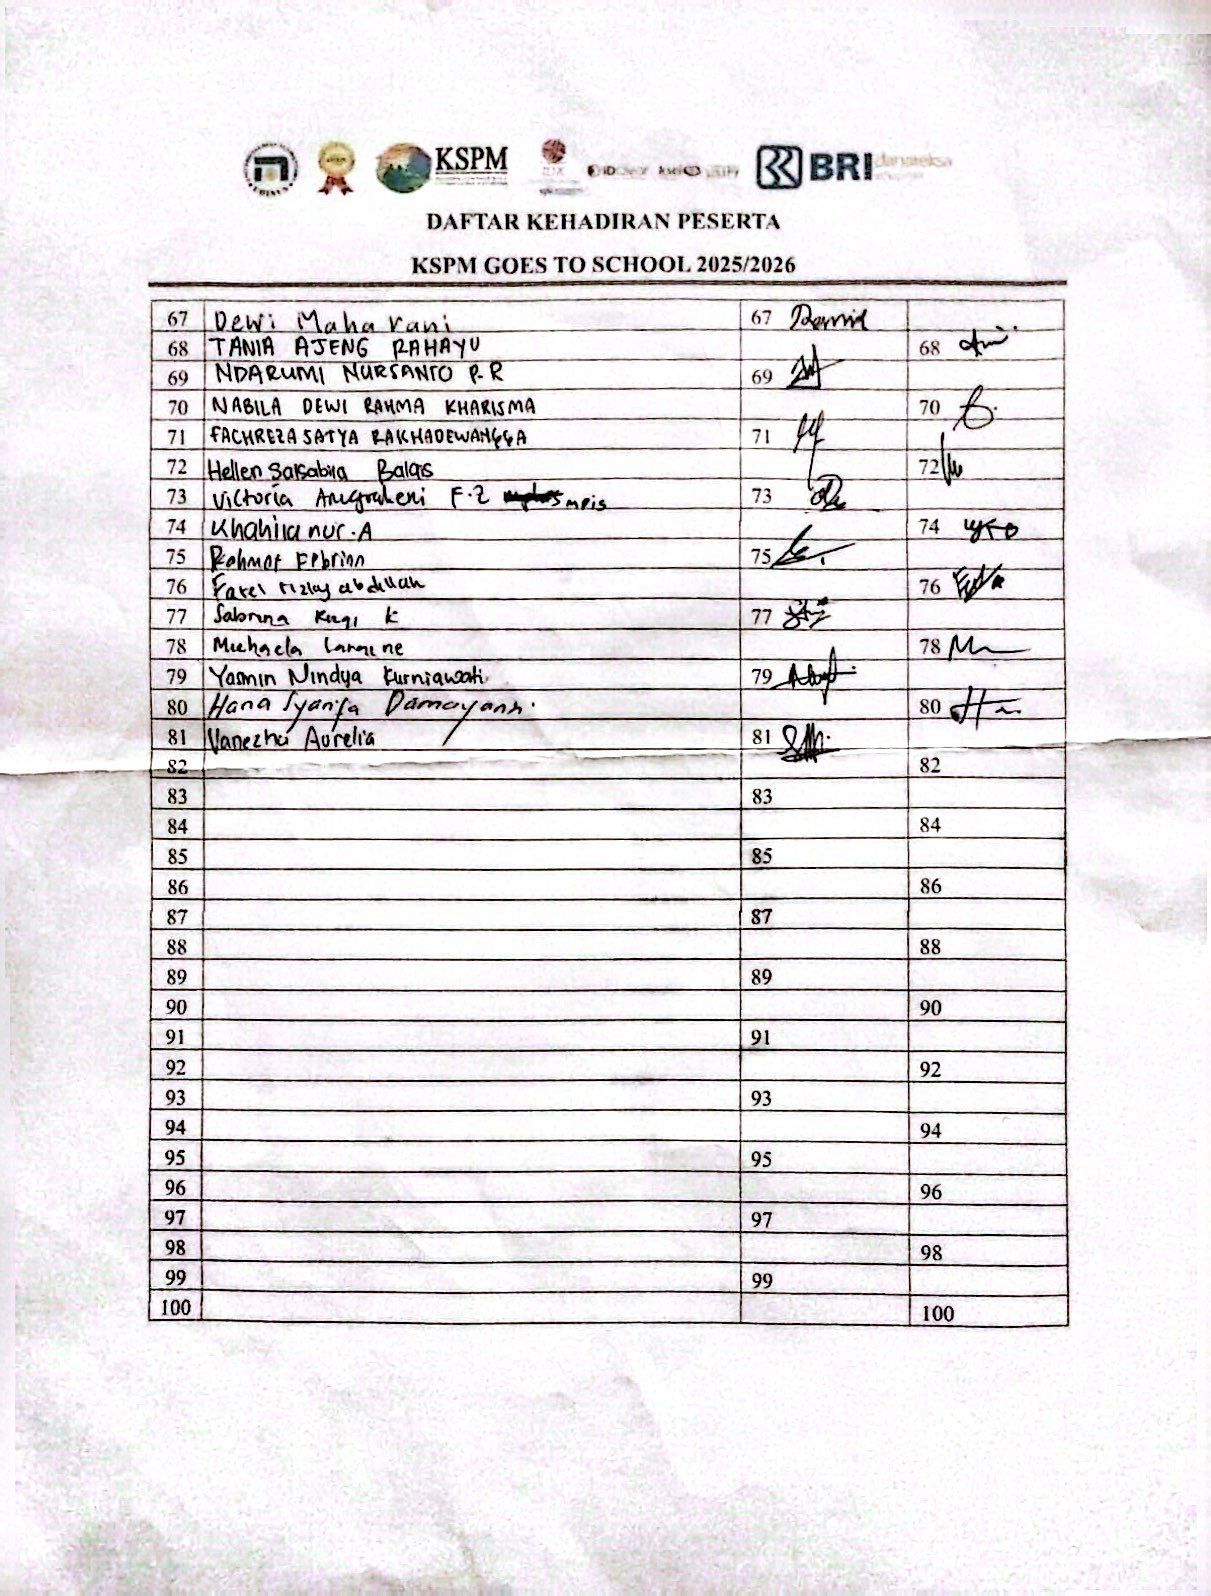 KSPM
BRI danareksa
DAFTAR KEHADIRAN PESERTA
KSPM GOES TO SCHOOL 2025/2026
67 Dewi Maharani 67
68 TANIA AJENG RAHAYU 68
69 NDARUMI NURSANTO P.R 69
70 NABILA DEWI RAHMA KHARISMA 70
71 FACHREZA SATYA RAKHADEWANGGA 71
72 Hellen Salsabila Balqis 72
73 Victoria Anugraheni F.Z 73
74 Khahila nur.A 74
75 Rahmat Febrian 75
76 Farel rizky abdillah 76
77 Sabrina K 77
78 Michaela 78
79 Yasmin Nindya Kurniawati 79
80 Hana Syarifa Damayanti 80
81 Vanezha Aurelia 81
82 82
83 83
84 84
85 85
86 86
87 87
88 88
89 89
90 90
91 91
92 92
93 93
94 94
95 95
96 96
97 97
98 98
99 99
100 100